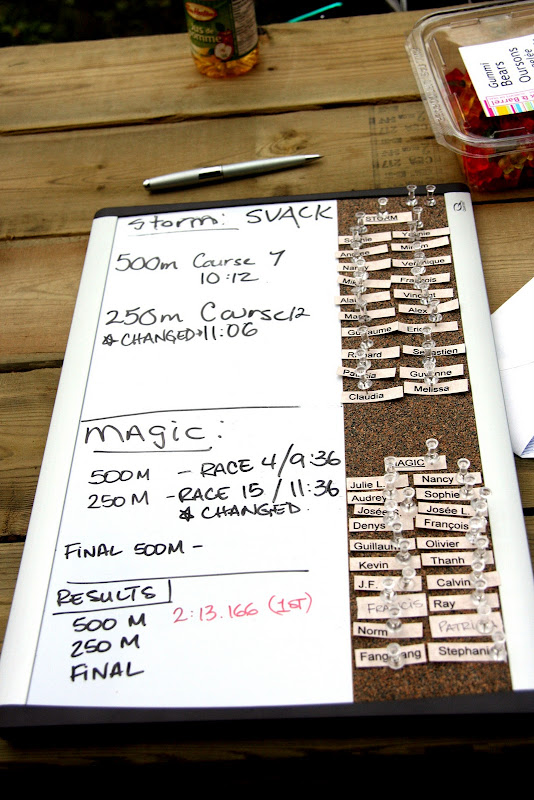 Gummi
Bears
Oursons
Storm: SVACK
500m Course 7
10:12
250m Course 12
* CHANGED → 11:06
MAGIC:
500M - RACE 4/9:36
250M - RACE 15 / 11:36
* CHANGED
FINAL 500M -
RESULTS
500 M 2:13.166 (1ST)
250 M
FINAL
STORM
Nancy François
Vincent
Alex
Guillaume
Sebastien
Guyenne
Claudia Melissa
MAGIC
Julie L. Nancy
Audrey Sophie
Josée Josée L.
Denys François
Guillaume Olivier
Kevin Thanh
J.F. Calvin
FRANCIS Ray
Norm PATRICK
Stephanie